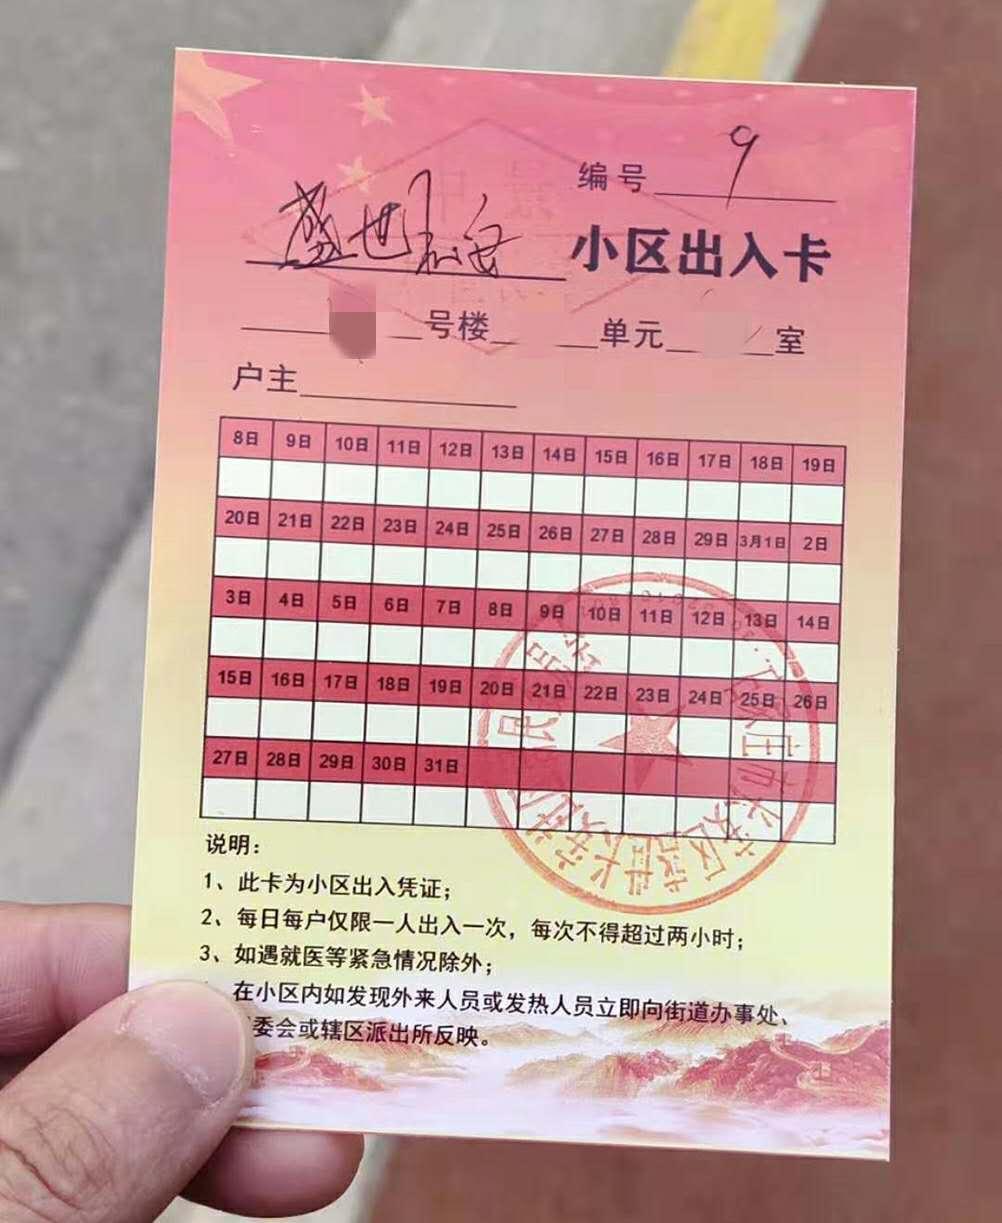 编号 9
盛世 小区出入卡
号楼 单元 室
户主
8日 9日 10日 11日 12日 13日 14日 15日 16日 17日 18日 19日
20日 21日 22日 23日 24日 25日 26日 27日 28日 29日 3月1日 2日
3日 4日 5日 6日 7日 8日 9日 10日 11日 12日 13日 14日
15日 16日 17日 18日 19日 20日 21日 22日 23日 24日 25日 26日
27日 28日 29日 30日 31日
说明：
1、此卡为小区出入凭证；
2、每日每户仅限一人出入一次，每次不得超过两小时；
3、如遇就医等紧急情况除外；
在小区内如发现外来人员或发热人员立即向街道办事处、
委会或辖区派出所反映。